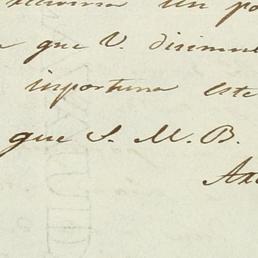 un po
que V. disimul
importuna este
que S. M. B.